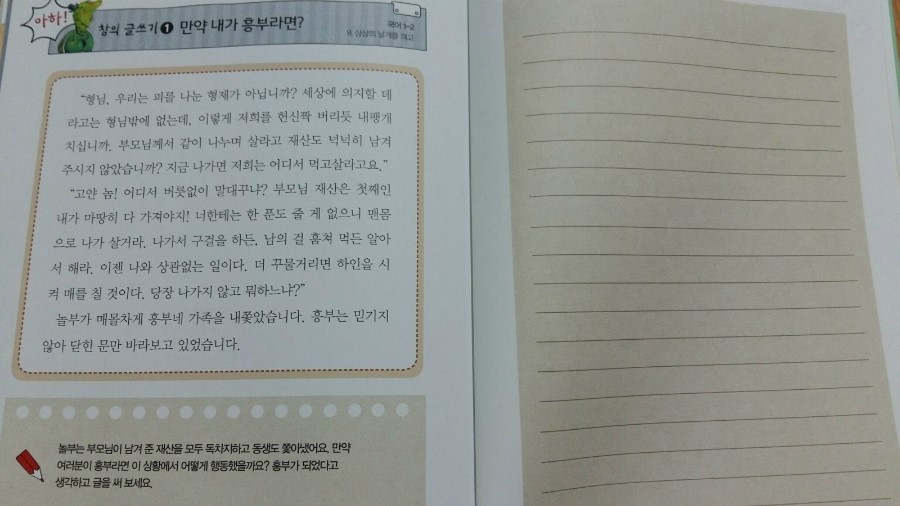 아하!
창의 글쓰기 1 만약 내가 흥부라면?
국어 1-2
9. 상상의 날개를 펴고
“형님, 우리는 피를 나눈 형제가 아닙니까? 세상에 의지할 데
라고는 형님밖에 없는데, 이렇게 저희를 헌신짝 버리듯 내팽개
치십니까. 부모님께서 같이 나누며 살라고 재산도 넉넉히 남겨
주시지 않았습니까? 지금 나가면 저희는 어디서 먹고살라고요.”
“고얀 놈! 어디서 버릇없이 말대꾸냐? 부모님 재산은 첫째인
내가 마땅히 다 가져야지! 너한테는 한 푼도 줄 게 없으니 맨몸
으로 나가 살거라. 나가서 구걸을 하든, 남의 걸 훔쳐 먹든 알아
서 해라. 이젠 나와 상관없는 일이다. 더 꾸물거리면 하인을 시
켜 매를 칠 것이다. 당장 나가지 않고 뭐하느냐?”
놀부가 매몰차게 흥부네 가족을 내쫓았습니다. 흥부는 믿기지
않아 닫힌 문만 바라보고 있었습니다.
놀부는 부모님이 남겨 준 재산을 모두 독차지하고 동생도 쫓아냈어요. 만약
여러분이 흥부라면 이 상황에서 어떻게 행동했을까요? 흥부가 되었다고
생각하고 글을 써 보세요.